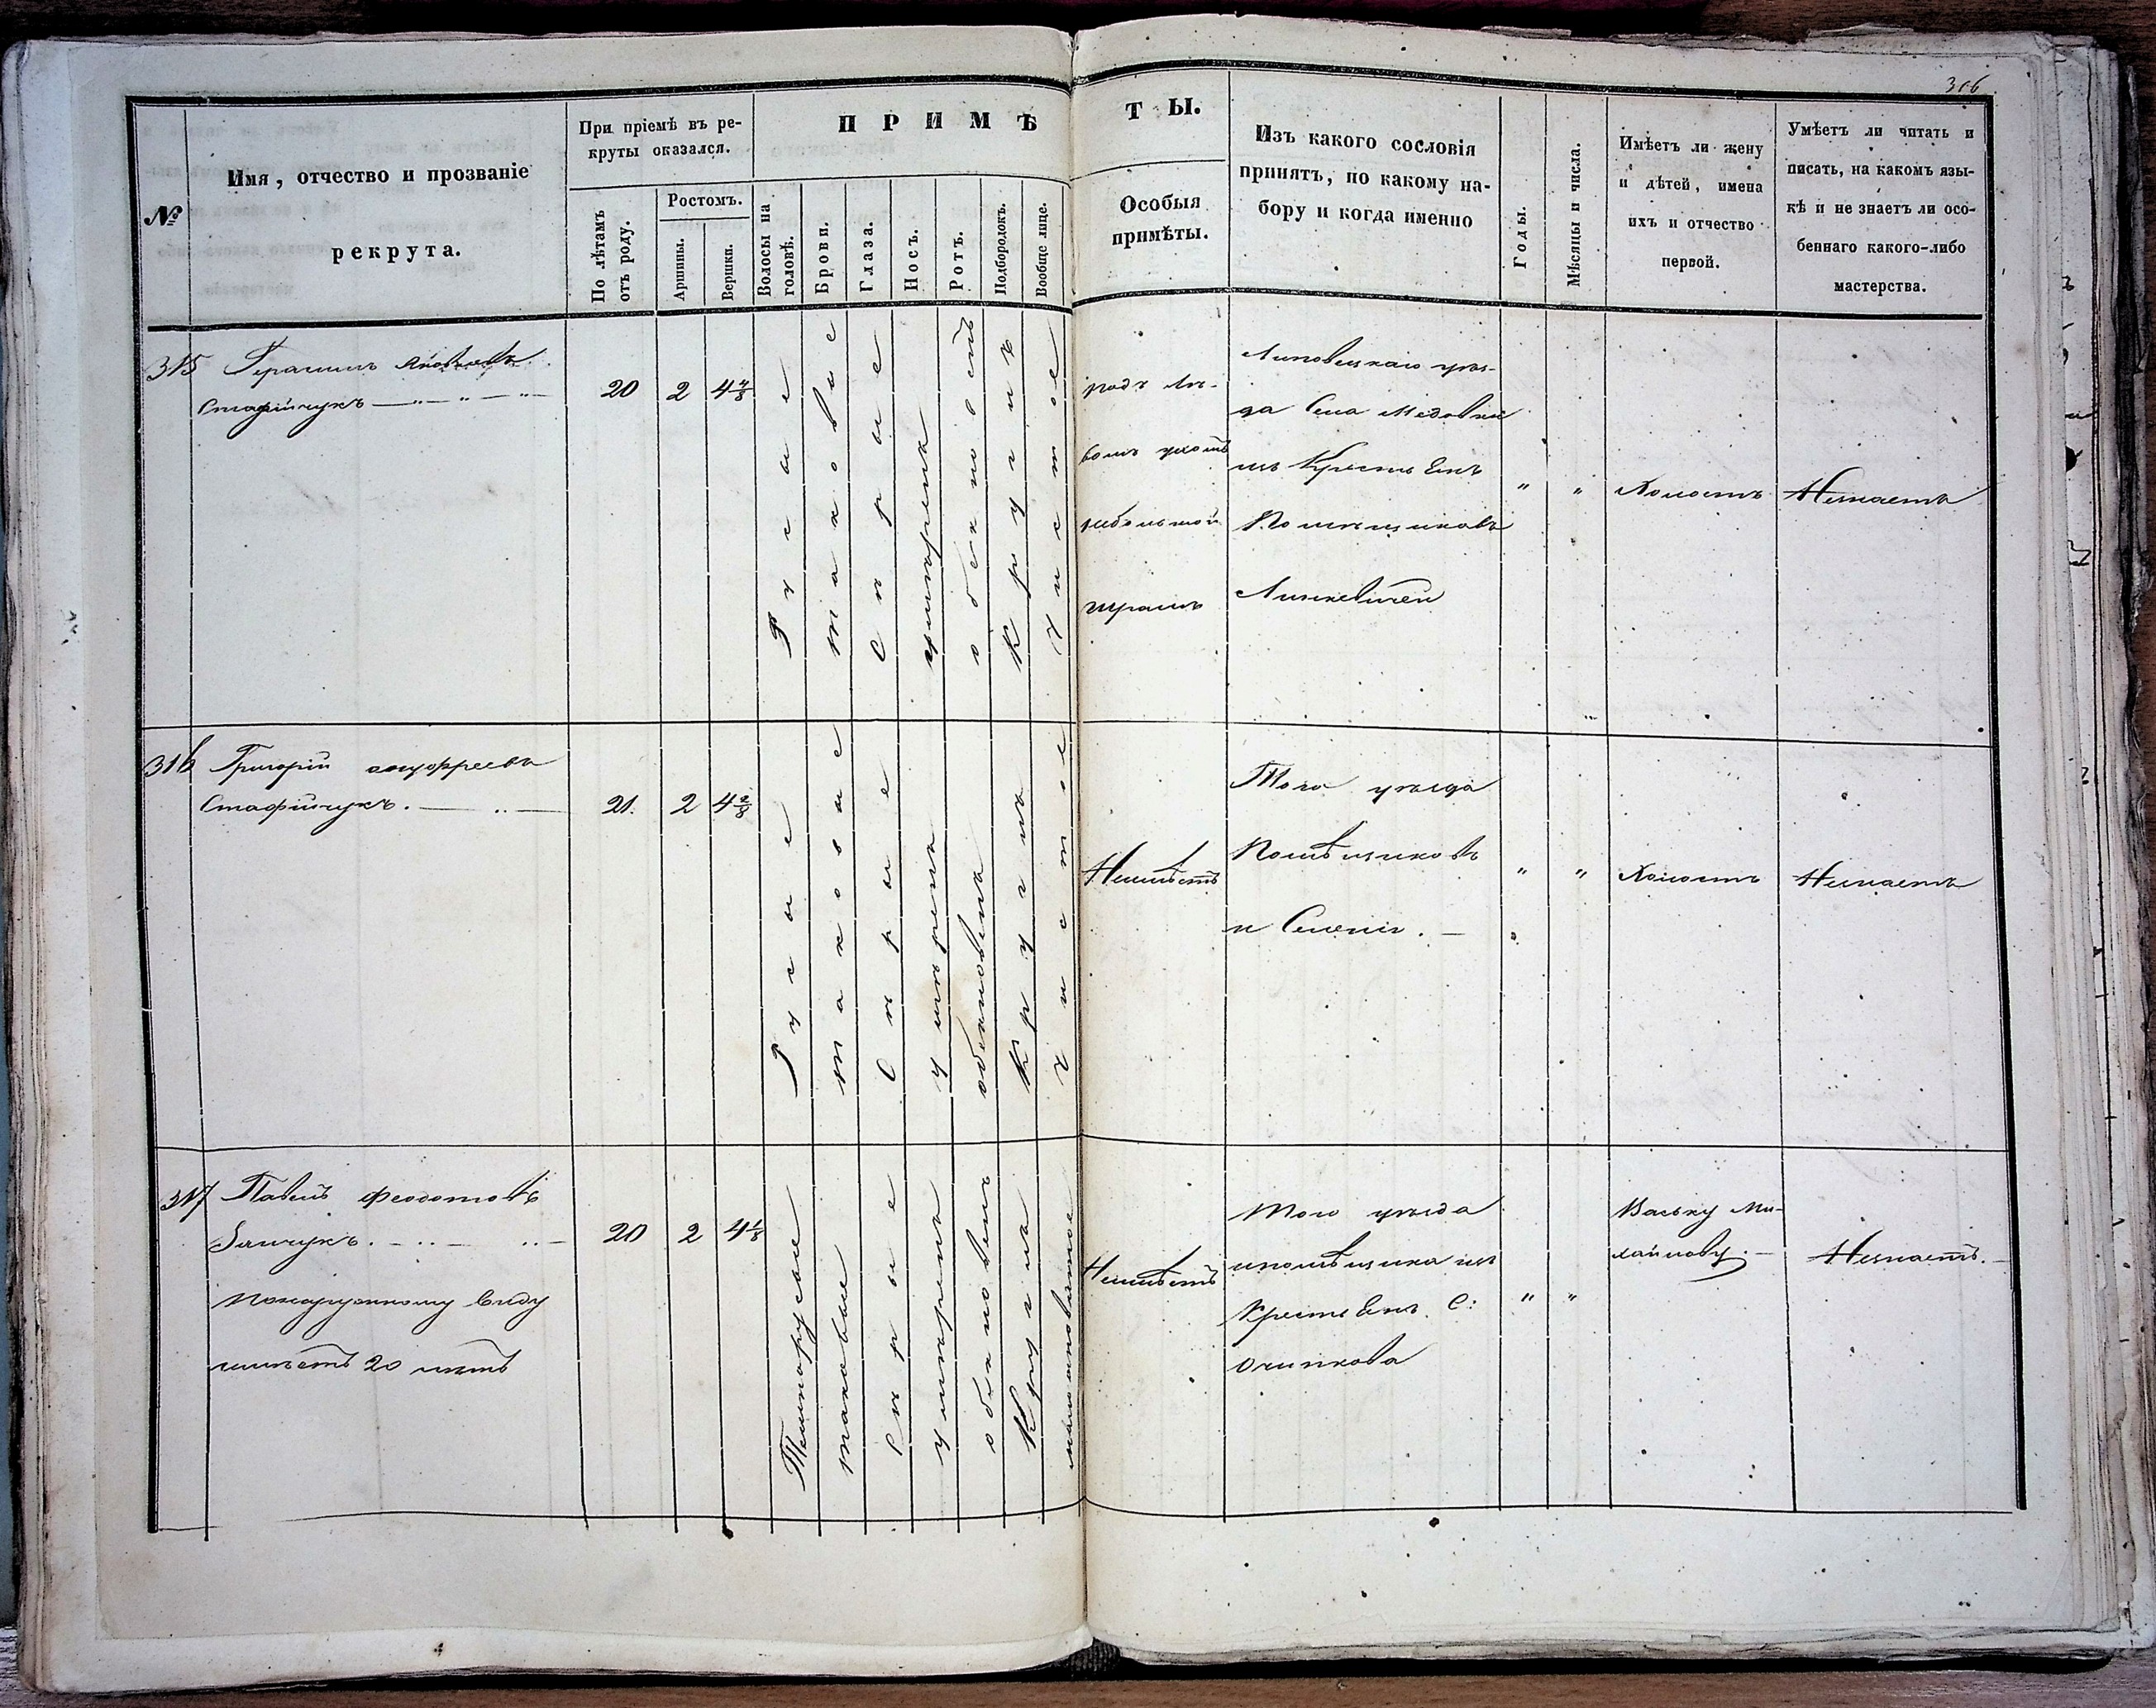 306
№
Имя, отчество и прозваніе
рекрута.
При пріемѣ въ ре-
круты оказался.
По лѣтамъ
отъ роду.
Ростомъ.
Аршины.
Вершки.
ПРИМѢ
Волосы на
головѣ.
Брови.
Глаза.
Носъ.
Ротъ.
Подбородокъ.
Вообще лице.
ТЫ.
Особыя
примѣты.
Изъ какого сословія
принятъ, по какому на-
бору и когда именно
Годы.
Мѣсяцы и числа.
Имѣетъ ли жену
и дѣтей, имена
ихъ и отчество
первой.
Умѣетъ ли читать и
писать, на какомъ язы-
кѣ и не знаетъ ли осо-
беннаго какого-либо
мастерства.
315
Герасимъ Яковлевъ
Стафійчукъ — „ — „ — „ —
20
2
4 4/8
Русые
таковые
Сѣрые
умѣренъ
обыкновенъ
Круглъ
Чистое
подъ лѣ-
вымъ ухомъ
небольшой
шрамъ
Липовецкаго уѣз-
да Села Медовки
изъ Крестьянъ
Помѣщиковъ
„
„
Холостъ
Незнаетъ
316
Григорій
Стафійчукъ. — .. —
21.
2
4 2/8
Русые
таковые
Сѣрые
умѣренъ
обыкновенъ
Круглъ
чистое
Неимѣетъ
Того уѣзда
Помѣщиковъ
и Селенія. —
„
„
Холостъ
Незнаетъ
317
Павелъ Феодотовъ
. — .. — .. —
понаружному виду
имѣетъ 20 лѣтъ
20
2
4 1/8
Темнорусые
таковые
Сѣрые
умѣренъ
обыкновенъ
Круглъ
Неимѣетъ
Того уѣзда
помѣщика изъ
Крестьянъ С:
Очиткова
„
„
Ваську Ми-
хайлову. —
Незнаетъ. —